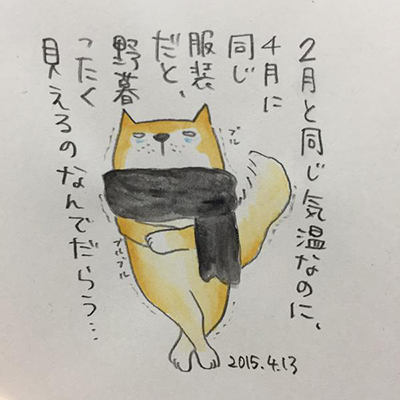 2月と同じ気温なのに、
4月に
同じ
服装
だと、
野暮
ったく
見えるのなんでだらう…
ブル
ブルブル
2015.4.13